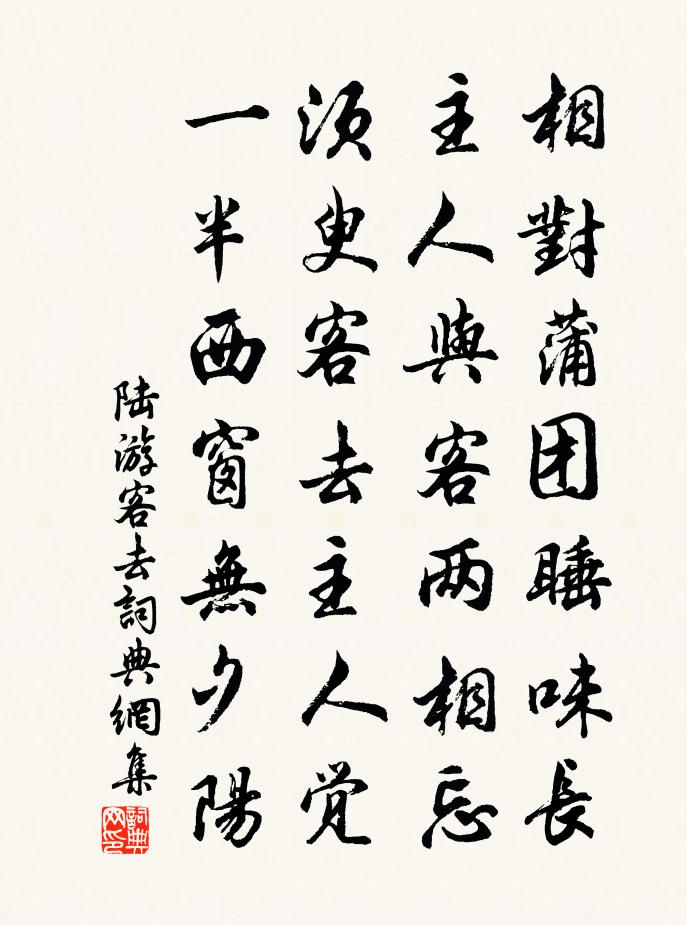 相對蒲团睡味長
主人與客两相忘
須臾客去主人覚
一半西窗無夕陽
陆游客去詞典網集
詞典网印